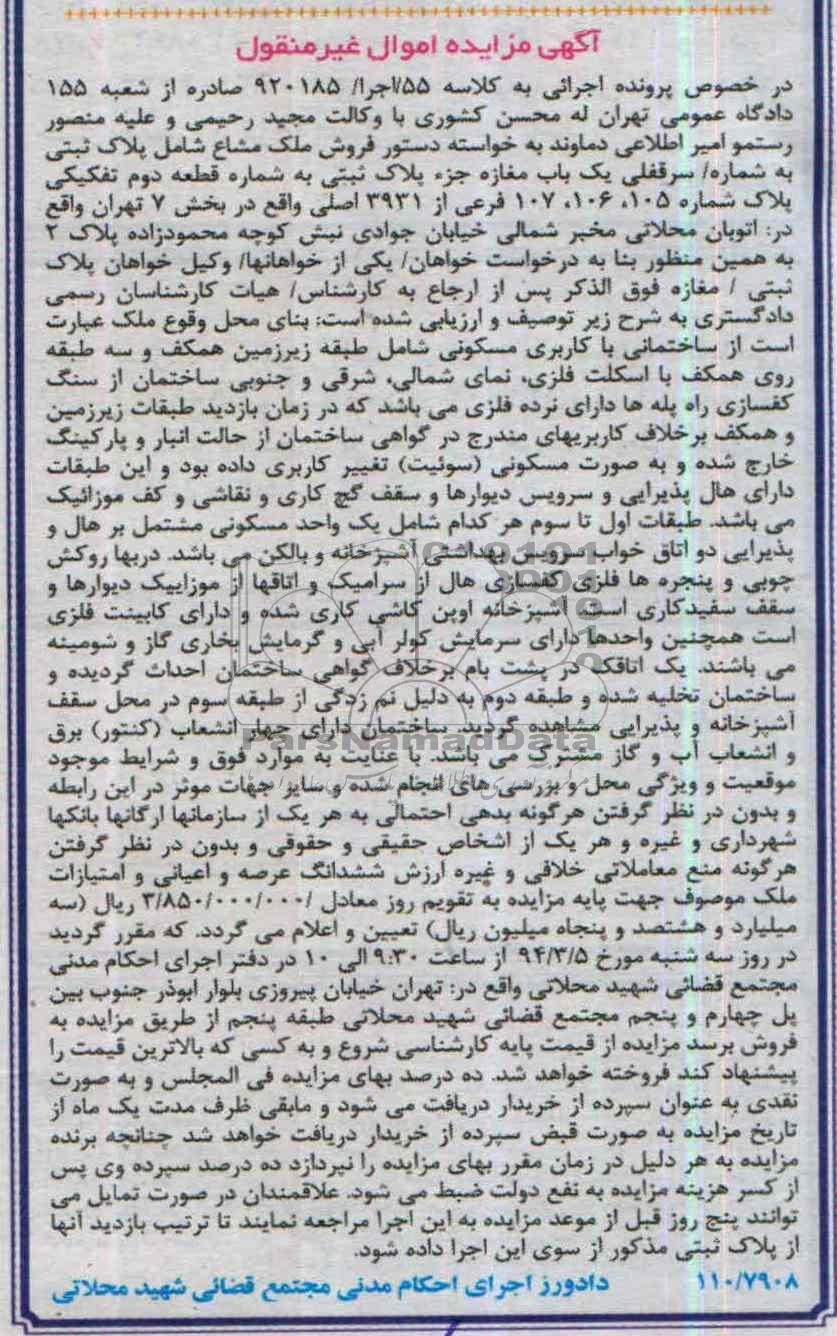 آگهی مزایده اموال غیرمنقول
در خصوص پرونده اجرائی به کلاسه ۵۵/اجرا/ ۹۲۰۱۸۵ صادره از شعبه ۱۵۵
دادگاه عمومی تهران له محسن کشوری با وکالت مجید رحیمی و علیه منصور
رستمو امیر اطلاعی دماوند به خواسته دستور فروش ملک مشاع شامل پلاک ثبتی
به شماره/ سرقفلی یک باب مغازه جزء پلاک ثبتی به شماره قطعه دوم تفکیکی
پلاک شماره ۱۰۵، ۱۰۶، ۱۰۷ فرعی از ۳۹۳۱ اصلی واقع در بخش ۷ تهران واقع
در: اتوبان محلاتی مخبر شمالی خیابان جوادی نبش کوچه محمودزاده پلاک ۲
به همین منظور بنا به درخواست خواهان/ یکی از خواهانها/ وکیل خواهان پلاک
ثبتی / مغازه فوق الذکر پس از ارجاع به کارشناس/ هیات کارشناسان رسمی
دادگستری به شرح زیر توصیف و ارزیابی شده است: بنای محل وقوع ملک عبارت
است از ساختمانی با کاربری مسکونی شامل طبقه زیرزمین همکف و سه طبقه
روی همکف با اسکلت فلزی، نمای شمالی، شرقی و جنوبی ساختمان از سنگ
کفسازی راه پله ها دارای نرده فلزی می باشد که در زمان بازدید طبقات زیرزمین
و همکف برخلاف کاربریهای مندرج در گواهی ساختمان از حالت انبار و پارکینگ
خارج شده و به صورت مسکونی (سوئیت) تغییر کاربری داده بود و این طبقات
دارای هال پذیرایی و سرویس دیوارها و سقف گچ کاری و نقاشی و کف موزائیک
می باشد. طبقات اول تا سوم هر کدام شامل یک واحد مسکونی مشتمل بر هال و
پذیرایی دو اتاق خواب سرویس بهداشتی آشپزخانه و بالکن می باشد. دربها روکش
چوبی و پنجره ها فلزی کفسازی هال از سرامیک و اتاقها از موزاییک دیوارها و
سقف سفیدکاری است. آشپزخانه اوپن کاشی کاری شده و دارای کابینت فلزی
است همچنین واحدها دارای سرمایش کولر آبی و گرمایش بخاری گاز و شومینه
می باشند. یک اتاقک در پشت بام برخلاف گواهی ساختمان احداث گردیده و
ساختمان تخلیه شده و طبقه دوم به دلیل نم زدگی از طبقه سوم در محل سقف
آشپزخانه و پذیرایی مشاهده گردید. ساختمان دارای چهار انشعاب (کنتور) برق
و انشعاب آب و گاز مشترک می باشد. با عنایت به موارد فوق و شرایط موجود
موقعیت و ویژگی محل و بررسی های انجام شده و سایر جهات موثر در این رابطه
و بدون در نظر گرفتن هرگونه بدهی احتمالی به هر یک از سازمانها ارگانها بانکها
شهرداری و غیره و هر یک از اشخاص حقیقی و حقوقی و بدون در نظر گرفتن
هرگونه منع معاملاتی خلافی و غیره ارزش ششدانگ عرصه و اعیانی و امتیازات
ملک موصوف جهت پایه مزایده به تقویم روز معادل /۳/۸۵۰/۰۰۰/۰۰۰ ریال (سه
میلیارد و هشتصد و پنجاه میلیون ریال) تعیین و اعلام می گردد. که مقرر گردید
در روز سه شنبه مورخ ۹۴/۳/۵ از ساعت ۹:۳۰ الی ۱۰ در دفتر اجرای احکام مدنی
مجتمع قضائی شهید محلاتی واقع در: تهران خیابان پیروزی بلوار ابوذر جنوب بین
پل چهارم و پنجم مجتمع قضائی شهید محلاتی طبقه پنجم از طریق مزایده به
فروش برسد مزایده از قیمت پایه کارشناسی شروع و به کسی که بالاترین قیمت را
پیشنهاد کند فروخته خواهد شد. ده درصد بهای مزایده فی المجلس و به صورت
نقدی به عنوان سپرده از خریدار دریافت می شود و مابقی ظرف مدت یک ماه از
تاریخ مزایده به صورت قبض سپرده از خریدار دریافت خواهد شد چنانچه برنده
مزایده به هر دلیل در زمان مقرر بهای مزایده را نپردازد ده درصد سپرده وی پس
از کسر هزینه مزایده به نفع دولت ضبط می شود. علاقمندان در صورت تمایل می
توانند پنج روز قبل از موعد مزایده به این اجرا مراجعه نمایند تا ترتیب بازدید آنها
از پلاک ثبتی مذکور از سوی این اجرا داده شود.
۱۱۰/۷۹۰۸ دادورز اجرای احکام مدنی مجتمع قضائی شهید محلاتی
ParsNamadData